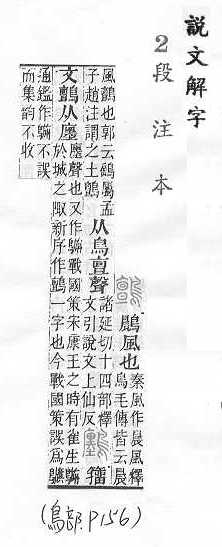 說文解字
2段注本
鷐風也
秦風作晨風釋
鳥毛傳皆云晨
風鸇也郭云鷂屬孟
子趙注謂之土鸇
从鳥亶聲
諸延切十四部釋
文引說文上仙反
籒
文鸇从廛
廛聲也又作戰國策宋康王之時有雀生
於城之陬新序作鸇一字也今戰國策誤爲
通鑑作不誤
而集韵不收
(鳥部.P156)